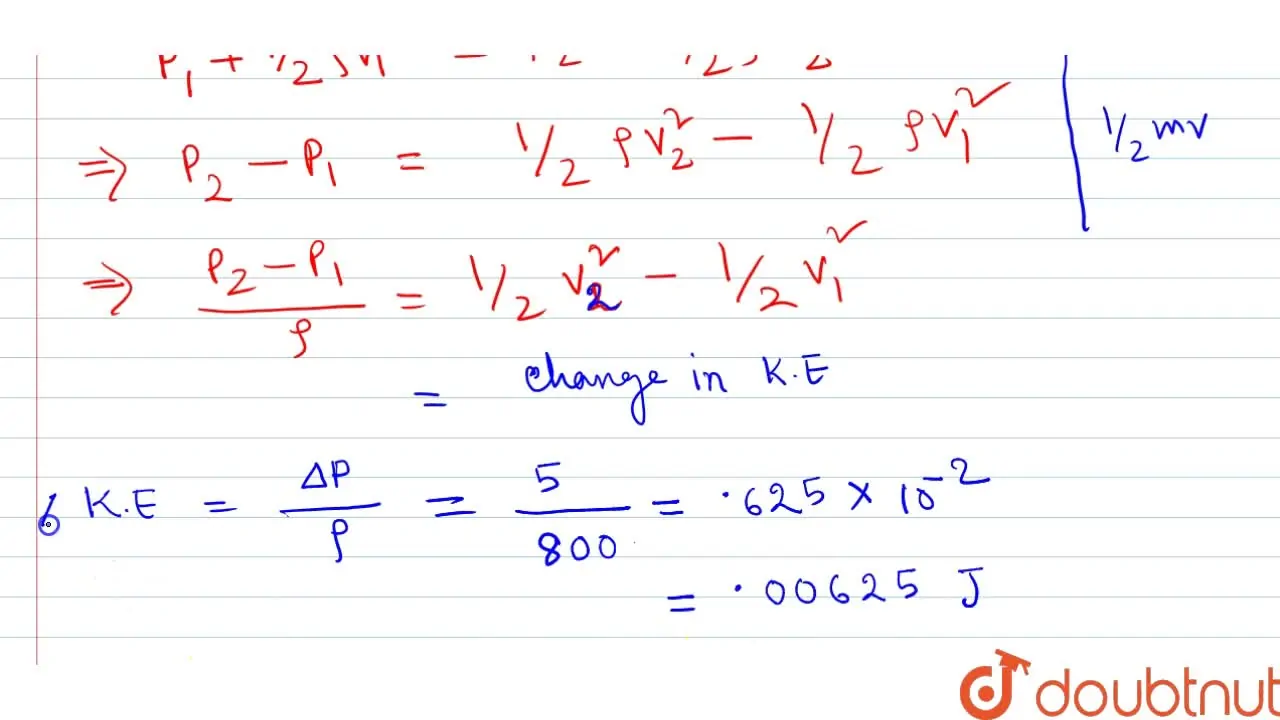 P₁ + 1/2 ρv₁
⇒ P₂ − P₁ = 1/2 ρv₂² − 1/2 ρv₁²
1/2 mv
⇒ (P₂ − P₁)/ρ = 1/2 v₂² − 1/2 v₁²
= change in K.E
K.E = ΔP/ρ = 5/800 = .625 × 10⁻²
= .00625 J
doubtnut